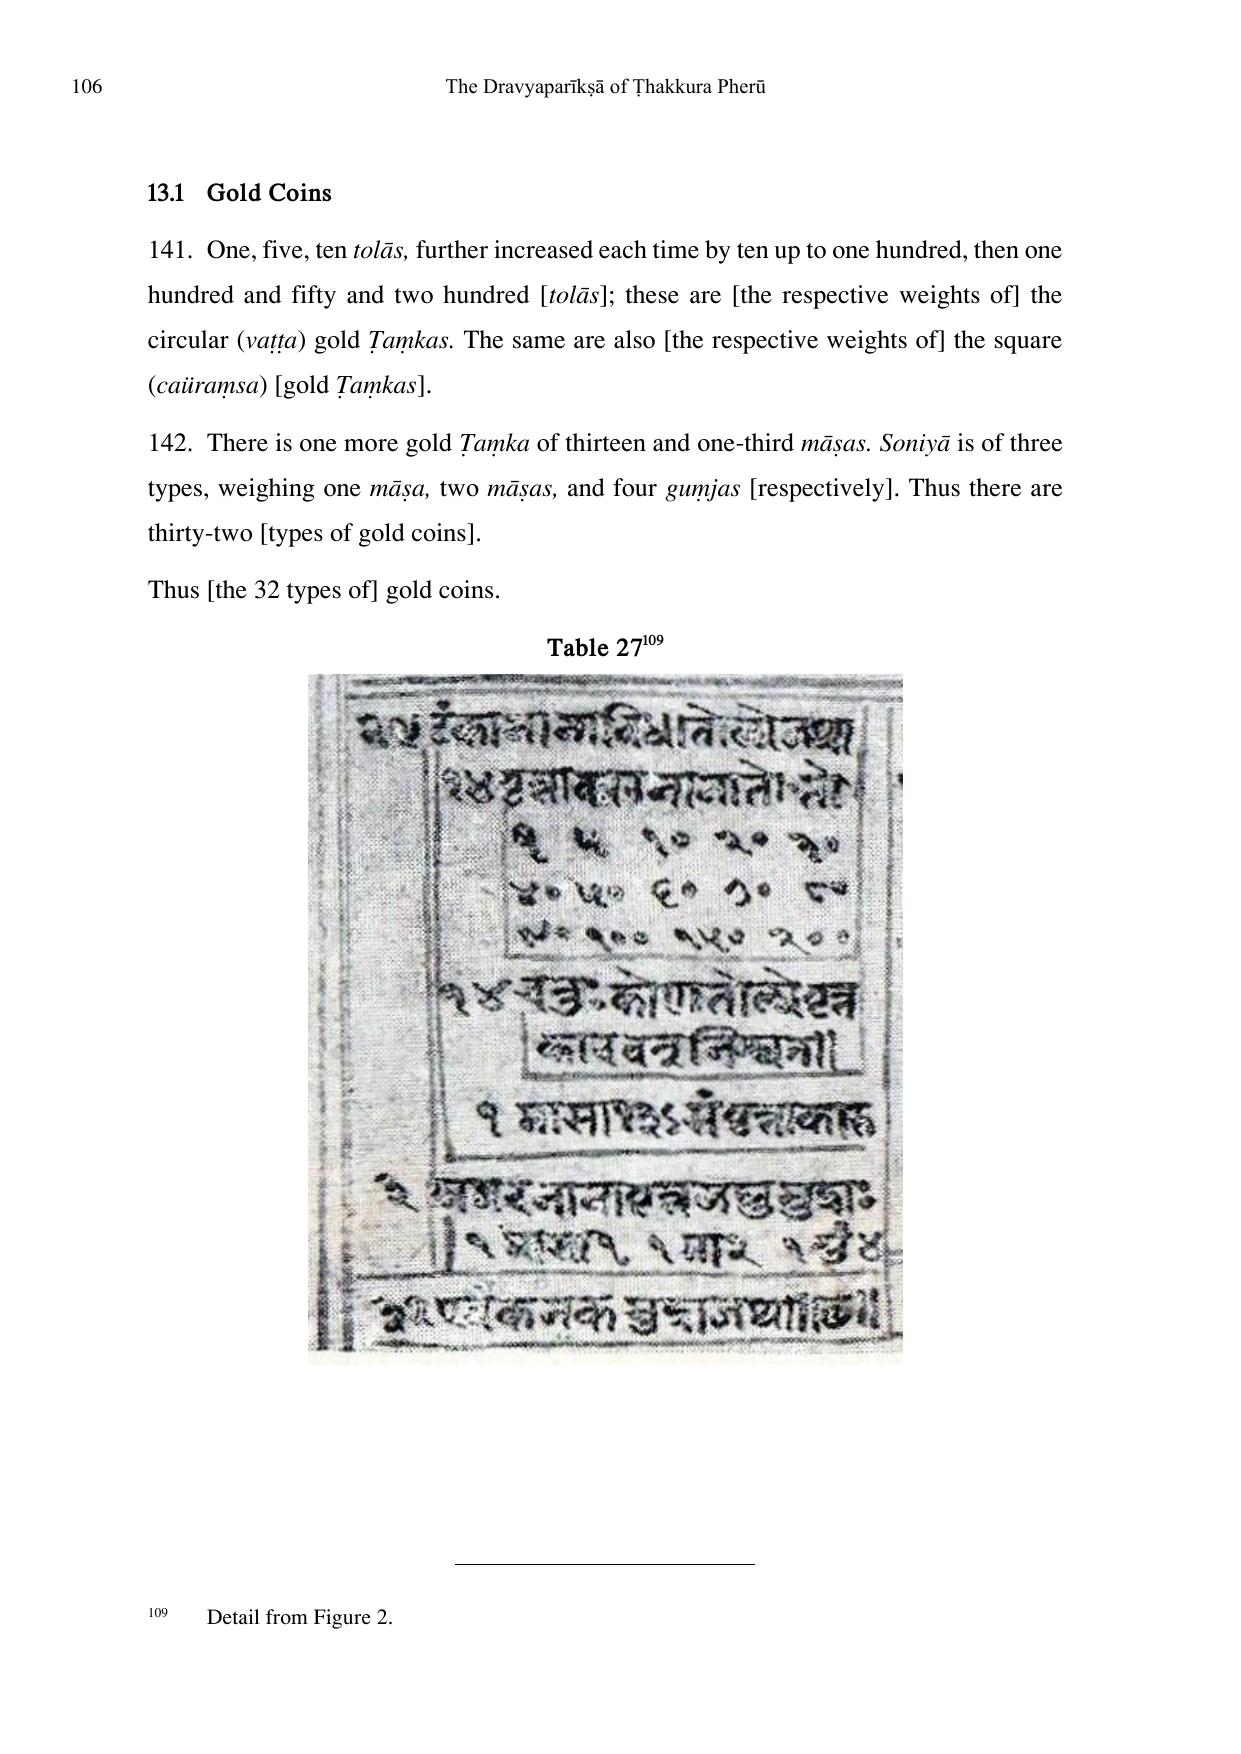 106
The Dravyaparīkṣā of Ṭhakkura Pherū
13.1 Gold Coins
141. One, five, ten tolās, further increased each time by ten up to one hundred, then one
hundred and fifty and two hundred [tolās]; these are [the respective weights of] the
circular (vaṭṭa) gold Ṭaṃkas. The same are also [the respective weights of] the square
(caüraṃsa) [gold Ṭaṃkas].
142. There is one more gold Ṭaṃka of thirteen and one-third māṣas. Soniyā is of three
types, weighing one māṣa, two māṣas, and four guṃjas [respectively]. Thus there are
thirty-two [types of gold coins].
Thus [the 32 types of] gold coins.
Table 27109
१ ५ १० २० ३०
४० ५० ६० ७० ८०
९० १०० १५० २००
१४
१ मासा
१ मासा १ १ मा २
109 Detail from Figure 2.